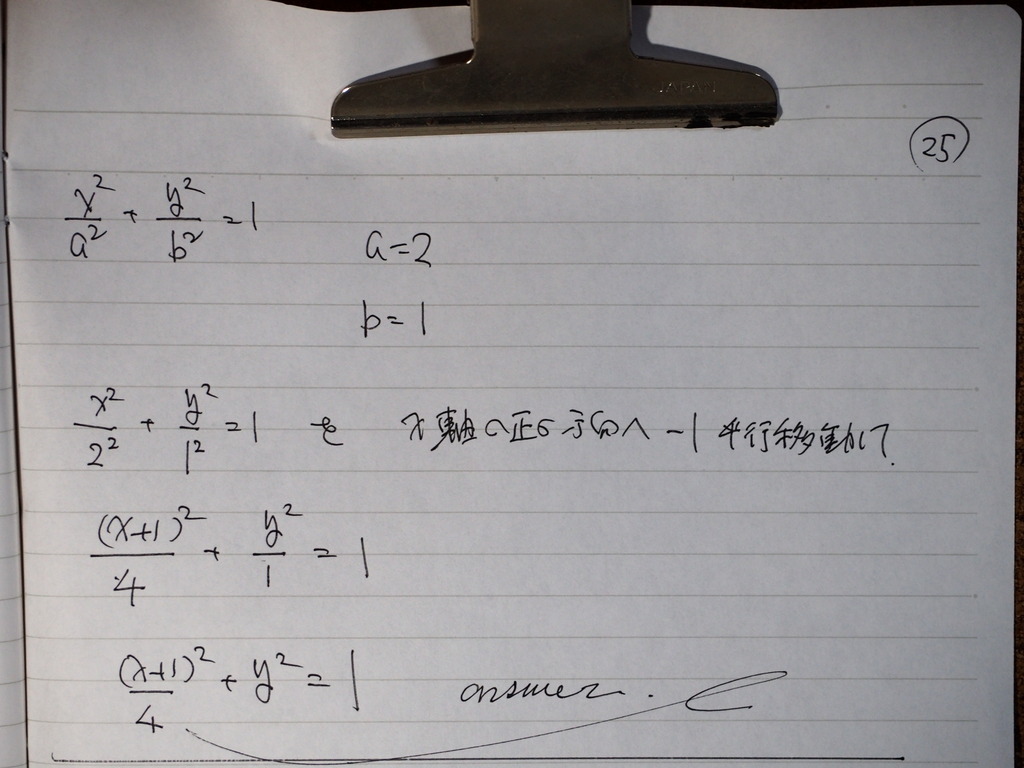 25
x²/a² + y²/b² = 1
a = 2
b = 1
x²/2² + y²/1² = 1 を x軸の正の方向へ -1 平行移動して
(x+1)²/4 + y²/1 = 1
(x+1)²/4 + y² = 1 answer.